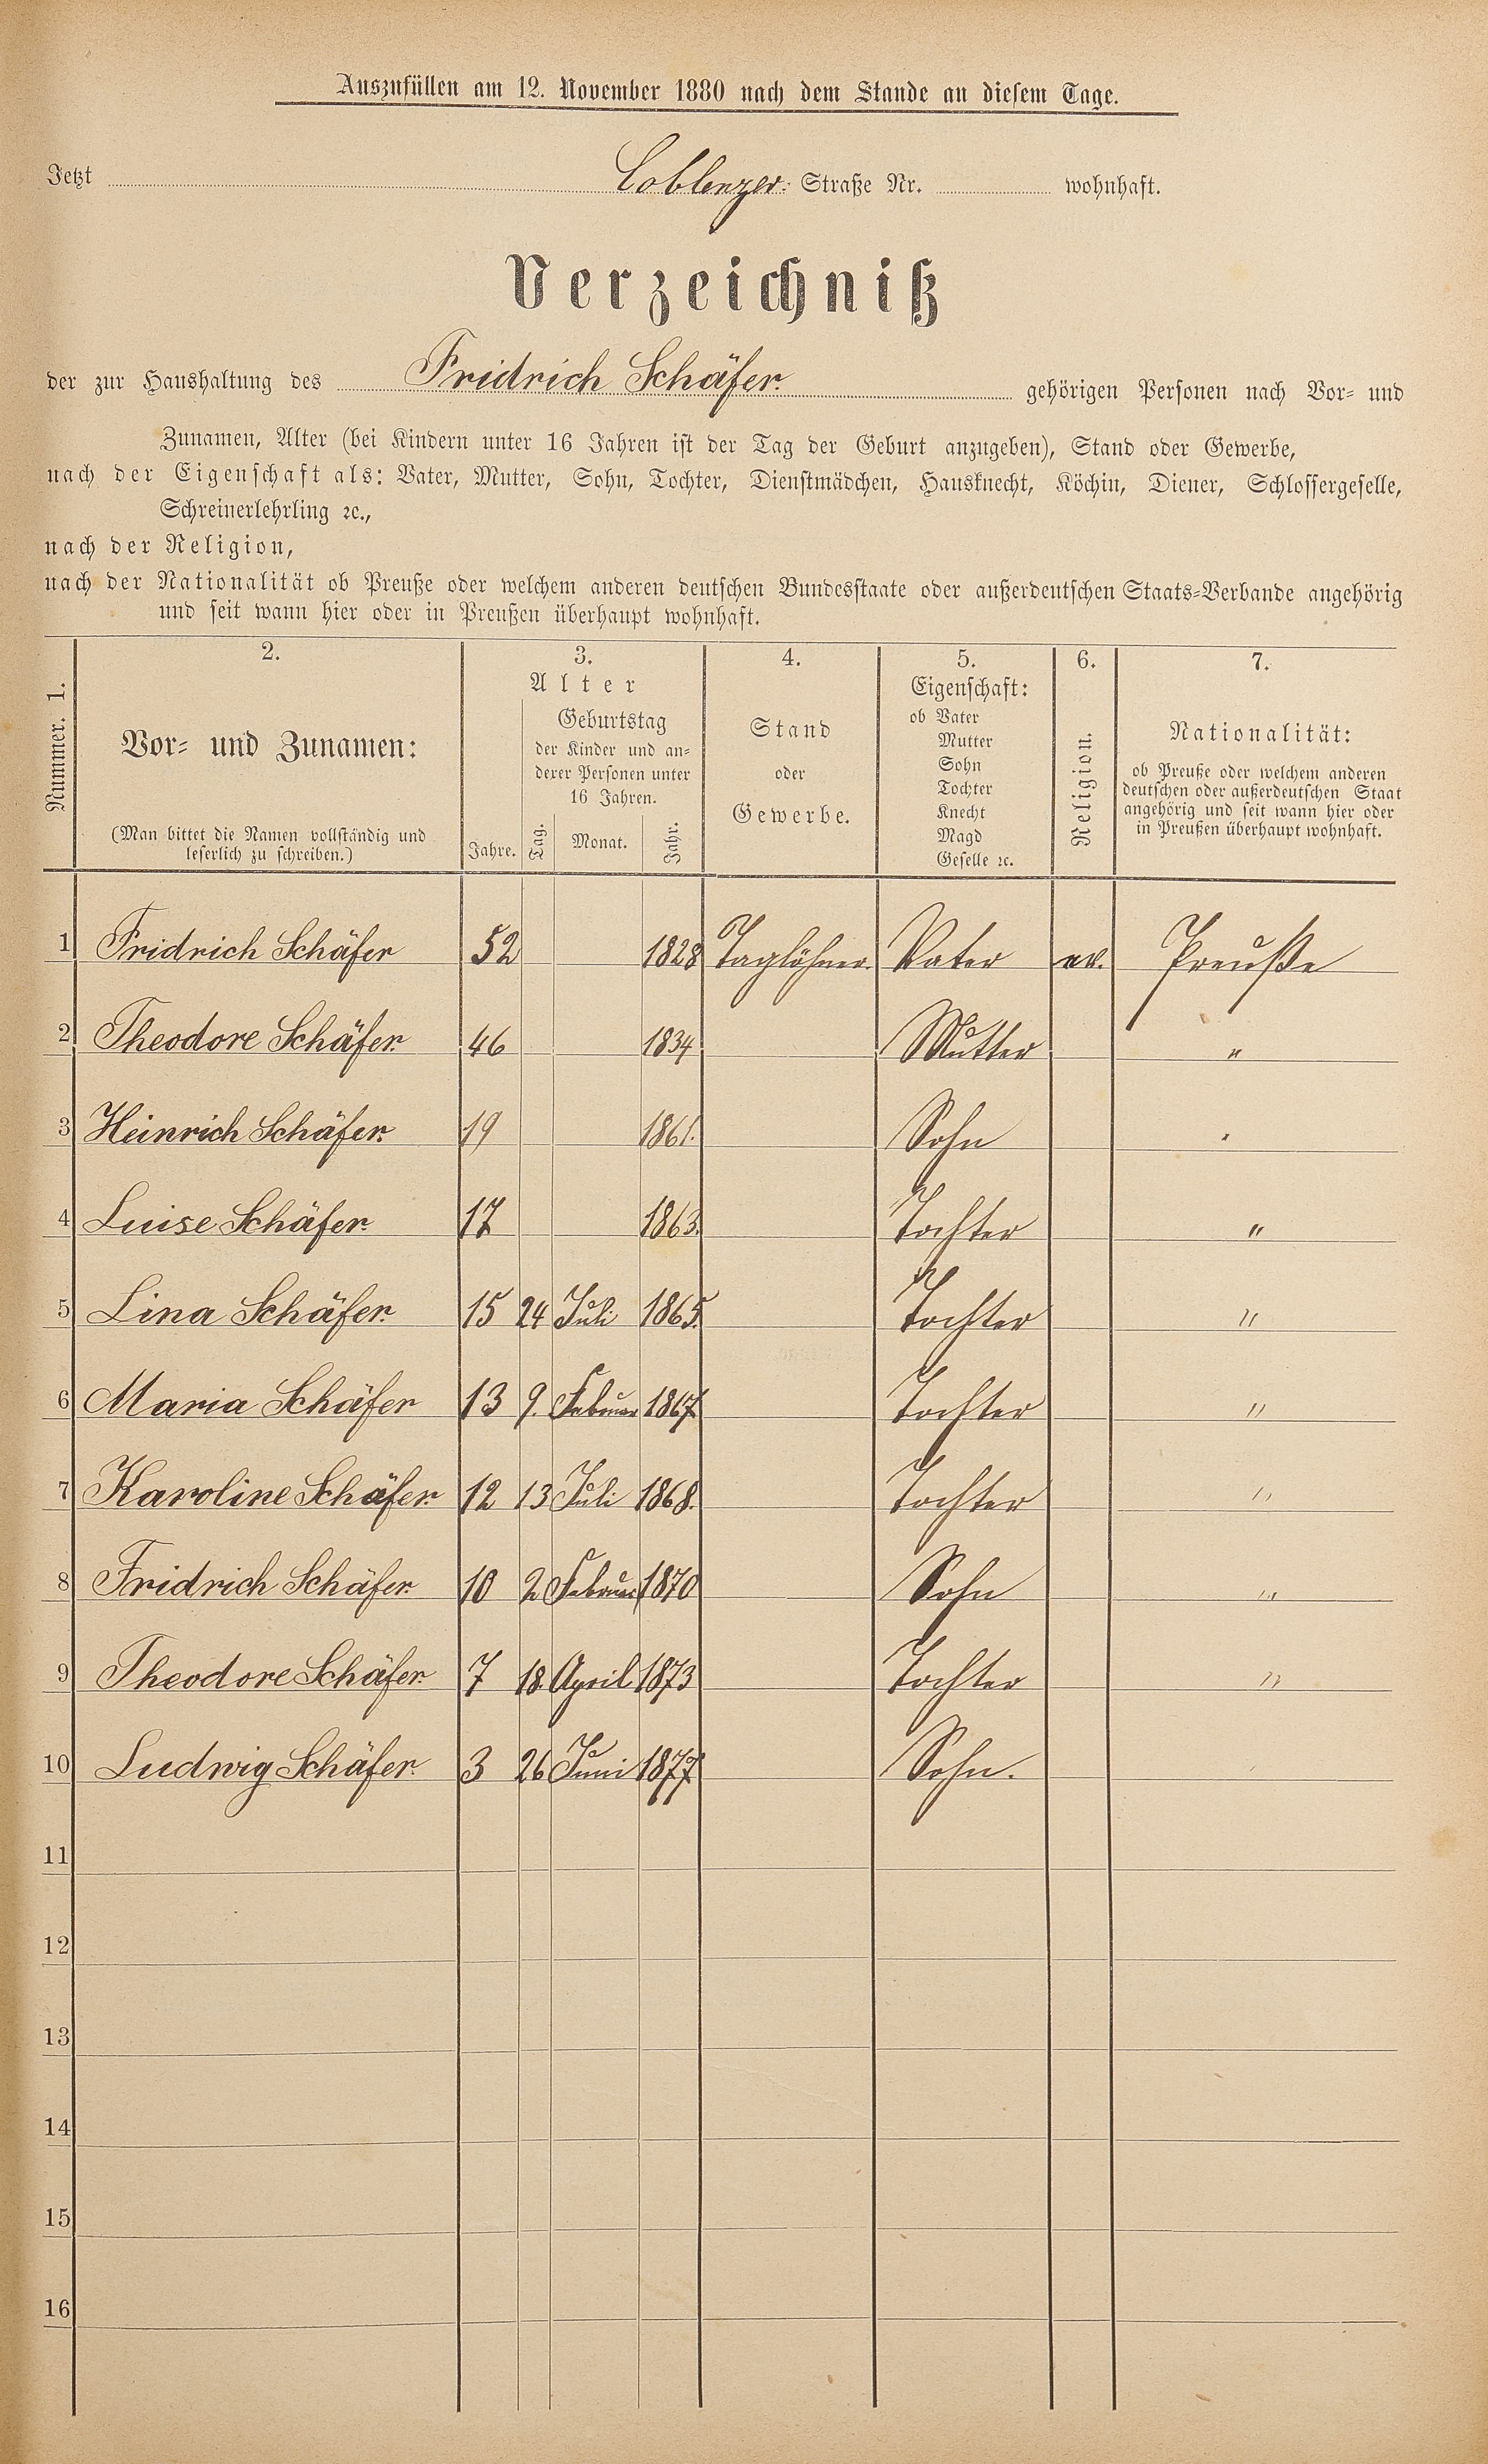 Auszufüllen am 12. November 1880 nach dem Stande an diesem Tage.
Jetzt Coblenzer Straße Nr. wohnhaft.
Verzeichniß
der zur Haushaltung des Fridrich Schäfer gehörigen Personen nach Vor- und
Zunamen, Alter (bei Kindern unter 16 Jahren ist der Tag der Geburt anzugeben), Stand oder Gewerbe,
nach der Eigenschaft als: Vater, Mutter, Sohn, Tochter, Dienstmädchen, Hausknecht, Köchin, Diener, Schlossergeselle,
Schreinerlehrling ꝛc.,
nach der Religion,
nach der Nationalität ob Preuße oder welchem anderen deutschen Bundesstaate oder außerdeutschen Staats-Verbande angehörig
und seit wann hier oder in Preußen überhaupt wohnhaft.
Nummer. 1.
2.
Vor- und Zunamen:
(Man bittet die Namen vollständig und
leserlich zu schreiben.)
3.
Alter
Jahre.
Geburtstag
der Kinder und an-
derer Personen unter
16 Jahren.
Tag. Monat. Jahr.
4.
Stand
oder
Gewerbe.
5.
Eigenschaft:
ob Vater
Mutter
Sohn
Tochter
Knecht
Magd
Geselle ꝛc.
6.
Religion.
7.
Nationalität:
ob Preuße oder welchem anderen
deutschen oder außerdeutschen Staat
angehörig und seit wann hier oder
in Preußen überhaupt wohnhaft.
1 Fridrich Schäfer 52 1828 Taglöhner. Vater ev. Preuße
2 Theodore Schäfer. 46 1834 Mutter "
3 Heinrich Schäfer. 19 1861. Sohn "
4 Luise Schäfer. 17 1863. Tochter "
5 Lina Schäfer. 15 24 Juli 1865. Tochter "
6 Maria Schäfer 13 9. Februar 1867. Tochter "
7 Karoline Schäfer. 12 13 Juli 1868. Tochter "
8 Fridrich Schäfer. 10 2 Februar 1870 Sohn "
9 Theodore Schäfer. 7 18. April 1873 Tochter "
10 Ludwig Schäfer. 3 26 Juni 1877 Sohn.
11
12
13
14
15
16